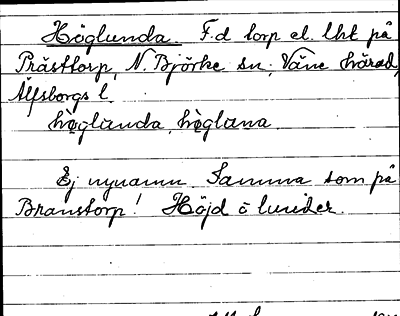 Höglunda. F.d torp el. lht på
Prästtorp, N. Björke sn, Väne härad,
Älfsborgs l.
hö̀glunda, hö̀gluna
Ej nynamn. Samma som på
Branstorp! Höjd o lunder.